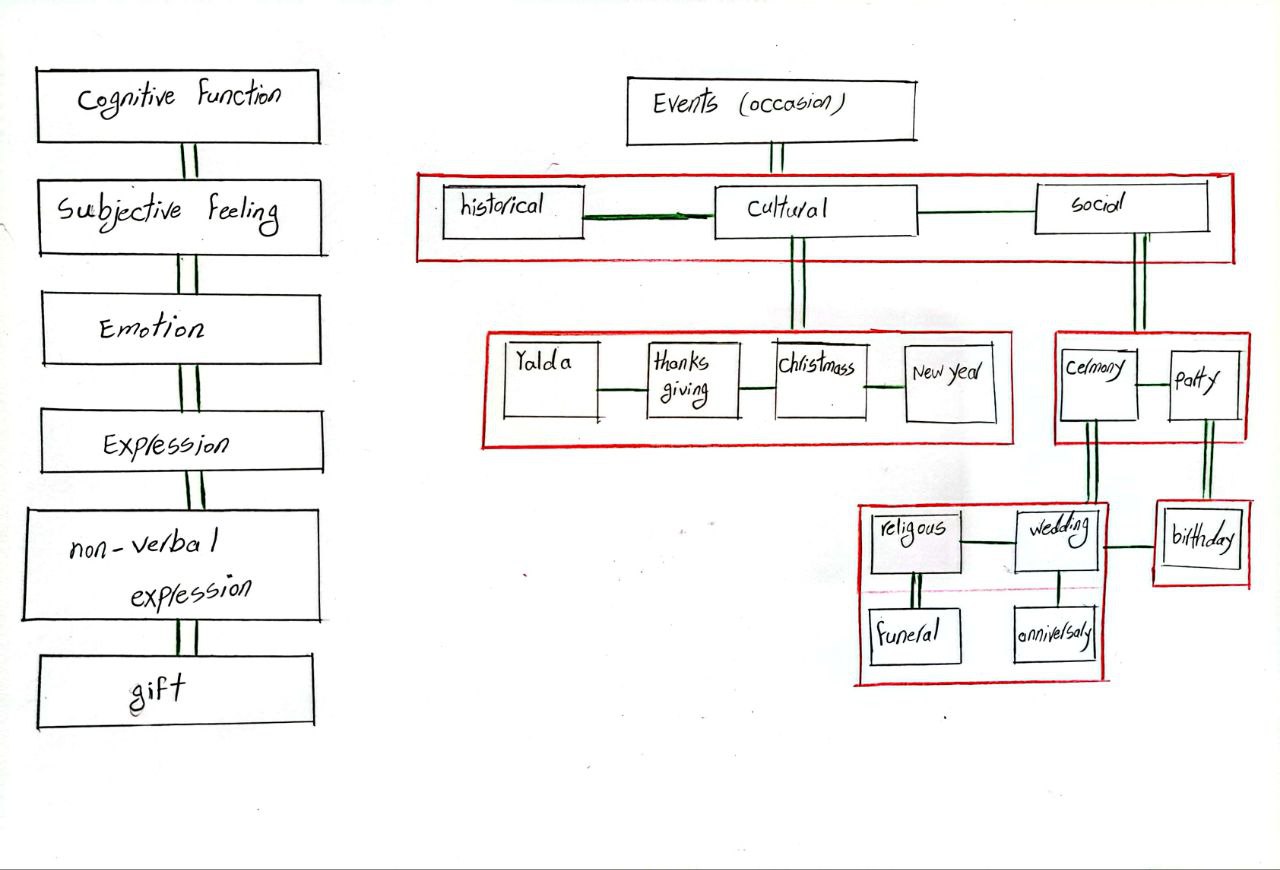 Cognitive function
Subjective feeling
Emotion
Expression
non-verbal
expression
gift
Events (occasion)
historical
cultural
social
Yalda
thanks
giving
christmass
New year
cermony
party
religous
wedding
birthday
funeral
anniversary